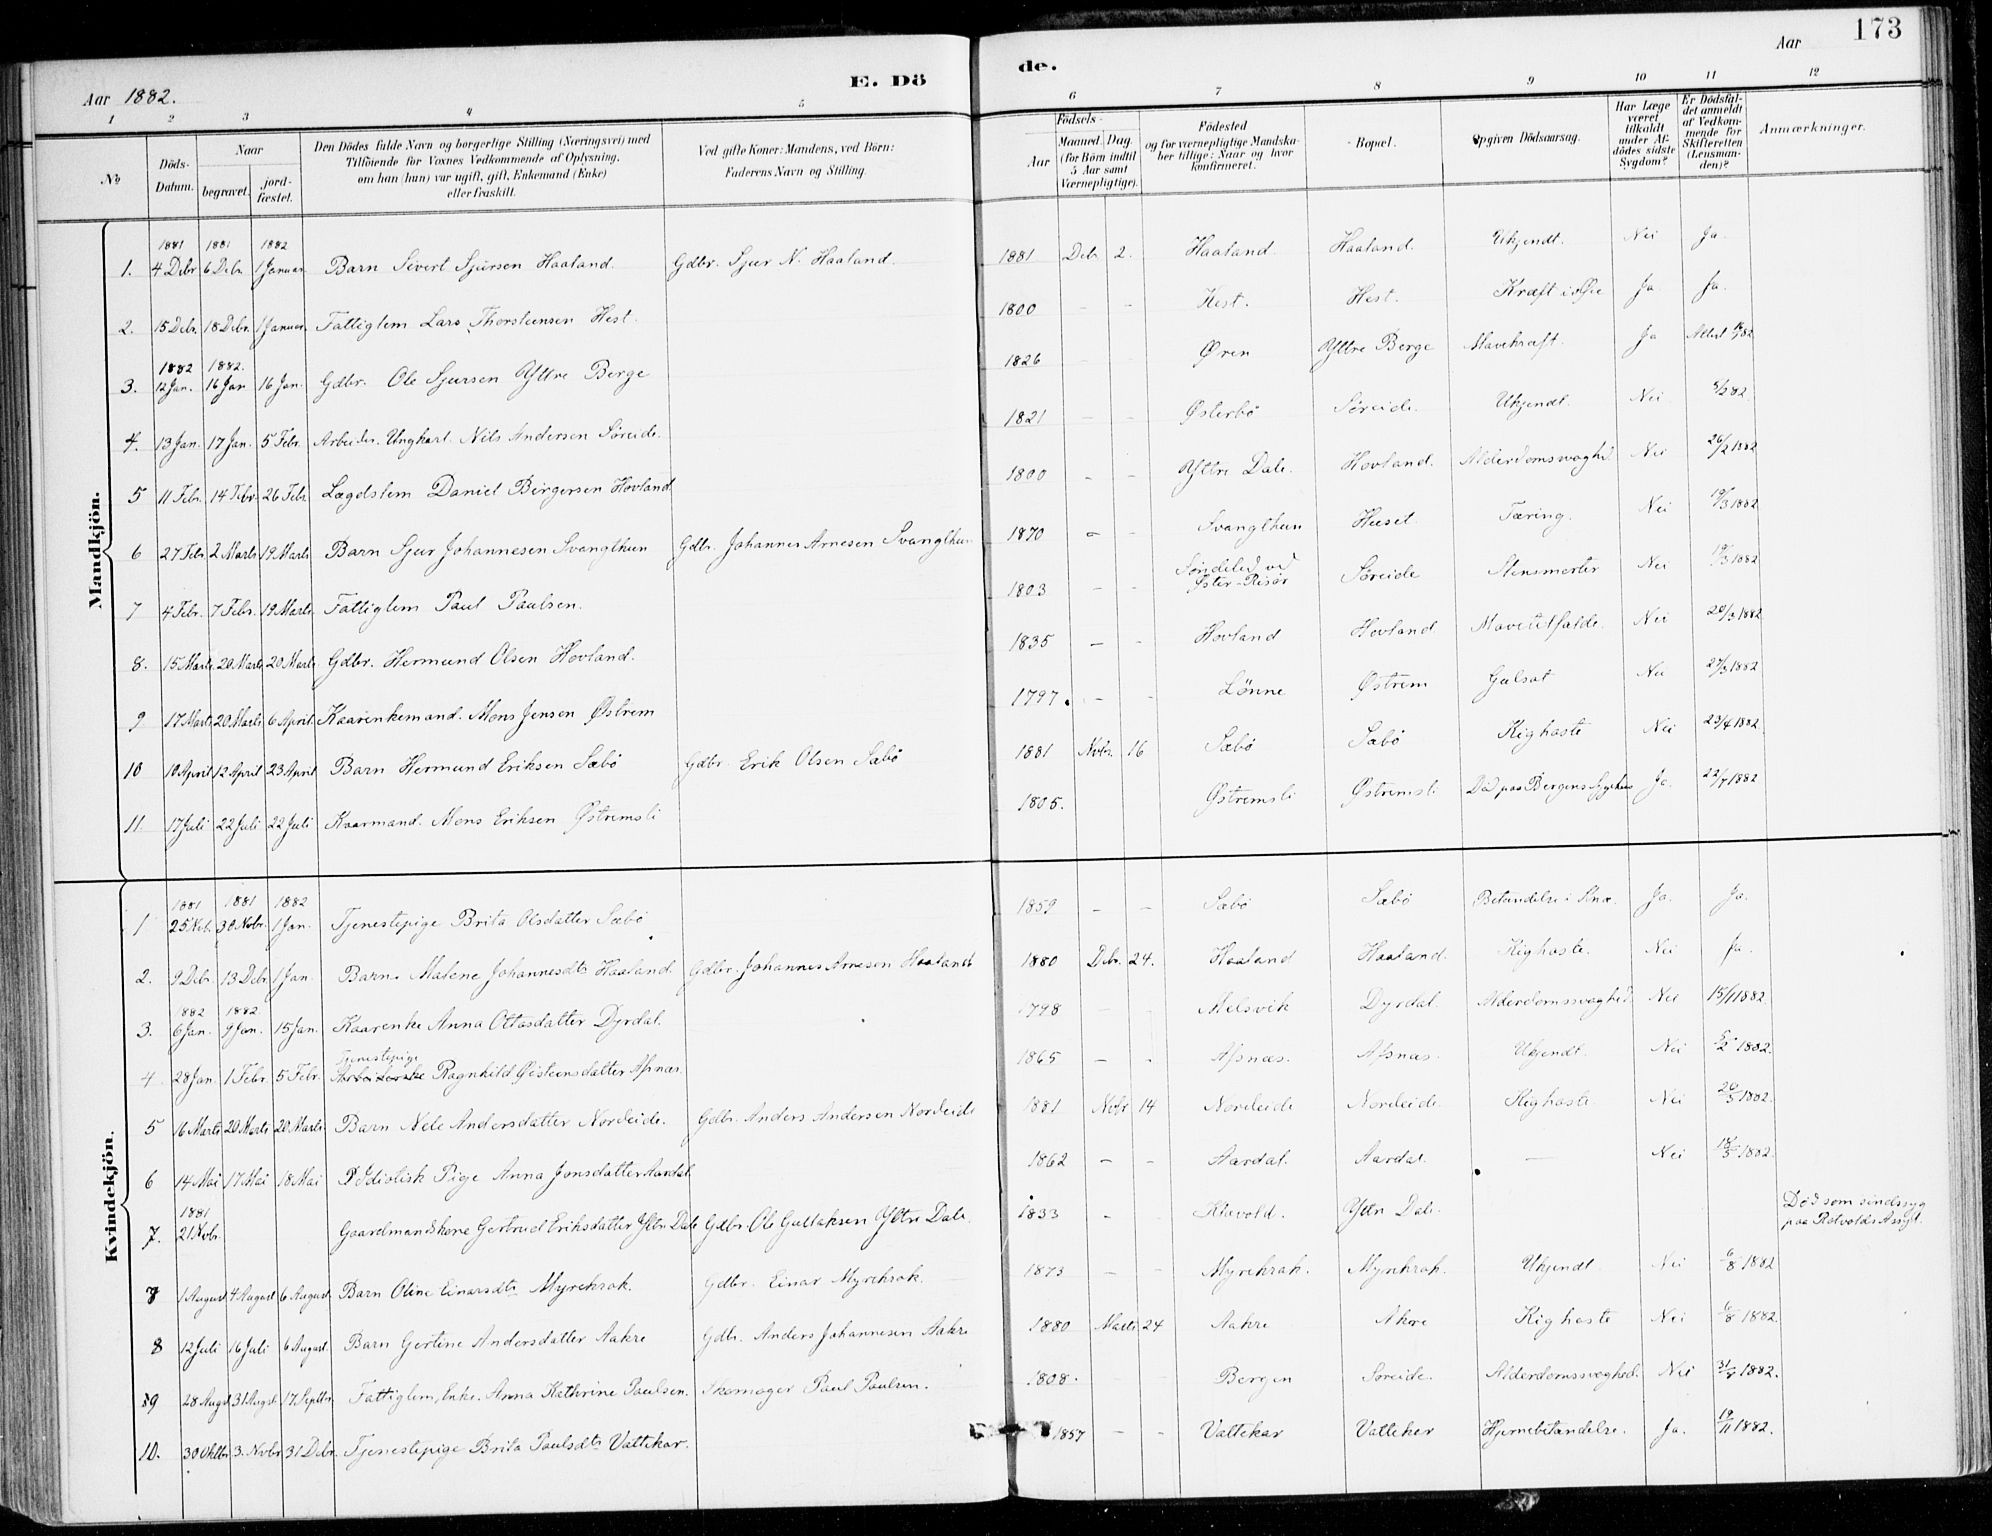 173
Aar 1882.
E. Döde.
Aar
1 2 3 4 5 6 7 8 9 10 11 12
No
Döds-Datum.
Naar
begravet. jordfæstet.
Den Dödes fulde Navn og borgerlige Stilling (Næringsvei) med
Tilföiende for Voxnes Vedkommende af Oplysning,
om han (hun) var ugift, gift, Enkemand (Enke)
eller fraskilt.
Ved gifte Koner: Mandens, ved Börn:
Faderens Navn og Stilling.
Födsels-
Aar Maaned. Dag.
(for Börn indtil 5 Aar samt Værnepligtige).
Födested
og for værnepligtige Mandskaber tillige: Naar og hvor konfirmeret.
Bopæl.
Opgiven Dödsaarsag.
Har Læge været tilkaldt under Afdödes sidste Sygdom?
Er Dödsfaldet anmeldt af Vedkommende for Skifteretten (Lensmanden)?
Anmærkninger.
Mandkjön.
1881 1881 1882
1. 4 Debr 6 Debr. 1 Januar Barn Sivert Sjursen Haaland. Gdbr. Sjur N. Haaland. 1881 Debr. 2. Haaland. Haaland. Ukjendt. Nei Ja.
2. 15 Debr. 18 Debr. 1 Januar. Fattiglem Lars Thorsteinsen Hest. 1800 - - Hest. Hest. Kræft i Øie Ja Ja.
1882 1882.
3. 12 Jan. 16 Jan 16 Jan. Gdbr. Ole Sjursen Yttre Berge 1826 - - Øren Yttre Berge Mavekræft. Ja
4. 13 Jan. 17 Jan. 5 Febr. Arbeider. Ungkarl. Nils Andersen Söreide. 1821 - - Østerbö Söreide. Ukjendt. Nei 5/2 82.
5 11 Febr. 14 Febr. 26 Febr Lægdslem Daniel Birgersen Hovland 1800 - - Yttre Dale. Hovland. Alderdomssvaghed Nei 26/2 1882
6 27 Febr. 2 Marts 19 Marts Barn Sjur Johannesen Svangthun Gdbr. Johannes Arnesen Svangthun 1870 - - Svangthun Huset Tæring. Nei 19/3 1882
7 4 Febr. 7 Febr. 19 Marts Fattiglem Paul Paulsen. 1803 - - Söndeled ved Öster-Risör Söreide Stensmerter Nei 19/3 1882
8. 15 Marts 20 Marts 20 Marts Gdbr. Hermund Olsen Hovland. 1835 - - Hovland Hovland Nei 20/3 1882
9 17 Marts 20 Marts 6 April Kaarenkemand. Mons Jensen Østrem 1797. - - Lönne Østrem Gulsot Nei 27/3 1882
10 10 April 12 April 23 April Barn Hermund Eriksen Sæbö Gdbr. Erik Olsen Sæbö 1881 Novbr. 16 Sæbö Sæbö Kighoste Nei 23/4 1882
11. 17 Juli 22 Juli 22 Juli Kaarmand. Mons Eriksen Østremsli 1805. Østremsli Østremsli Död paa Bergens Sygehus Ja. 22/7 1882
Kvindekjön.
1881 1881 1882
1 25 Nvbr. 30 Nvbr. 1 Jan. Tjenestepige Brita Olsdatter Sæbö 1859 - - Sæbö Sæbö Betændelse i Knæ. Ja. Ja.
2. 9 Debr. 13 Debr 1 Jan. Barn. Malene Johannesdtr Haaland. Gdbr. Johannes Arnesen Haaland 1880 Debr. 24. Haaland Haaland. Kighoste. Nei Ja.
1882 1882
3. 6 Jan. 9 Jan. 15 Jan. Kaarenke Anna Ottosdatter Dyrdal. 1798 - - Melsvik Dyrdal Alderdomssvaghed Nei 15/1 1882
Tjenestepige
4. 28 Jan. 1 Febr. 5 Febr. Ragnhild Øisteensdatter Afsnæs. 1865 - - Afsnæs. Afsnæs. Ukjendt. Nei 5/2 1882.
5 16 Marts 20 Marts 20 Marts Barn Nele Andersdatter Nordeide. Gdbr. Anders Andersen Nordeide 1881 Nvbr 14 Nordeide Nordeide. Kighoste. Nei 20/3 1882.
6 14 Mai 17 Mai 18 Mai Idiotisk Pige Anna Jonsdatter Aardal 1862 - - Aardal. Aardal. - Nei 18/5 1882
1881
7. 21 Nvbr. Gaardmandskone Gertrud Eriksdatter Yttre Dale Gdbr. Ole Gullaksen Yttre Dale. 1833 - Yttre Dale. Död som sindssyg
paa Rotvolds Asyl.
7 1 August 4 August 6 August Barn Oline Einarsdtr Myrekrok. Gdbr. Einar Myrekrok. 1873 - - Myrekrok. Myrekrok. Ukjendt. Nei 6/8 1882
8 12 Juli 16 Juli 6 August. Barn Gertine Andersdatter Aakre Gdbr. Anders Johannesen Aakre 1880 Marts 24 Aakre Akre Kighoste Nei 6/8 1882.
9 28 Augst 31 Augst. 17 Septbr. Fattiglem, Enke. Anna Kathrine Paulsen. Skomager Paul Paulsen. 1808. - - Bergen Soreide. Alderdomssvaghed. Nei 1882.
10. 30 Oktbr 3. Nvbr 31 Debr. Tjenestepige Brita Paulsdtr Vattekar. 1857 - - Vattekar Vatteker Hjernebetændelse. Ja. 19/11 1882.